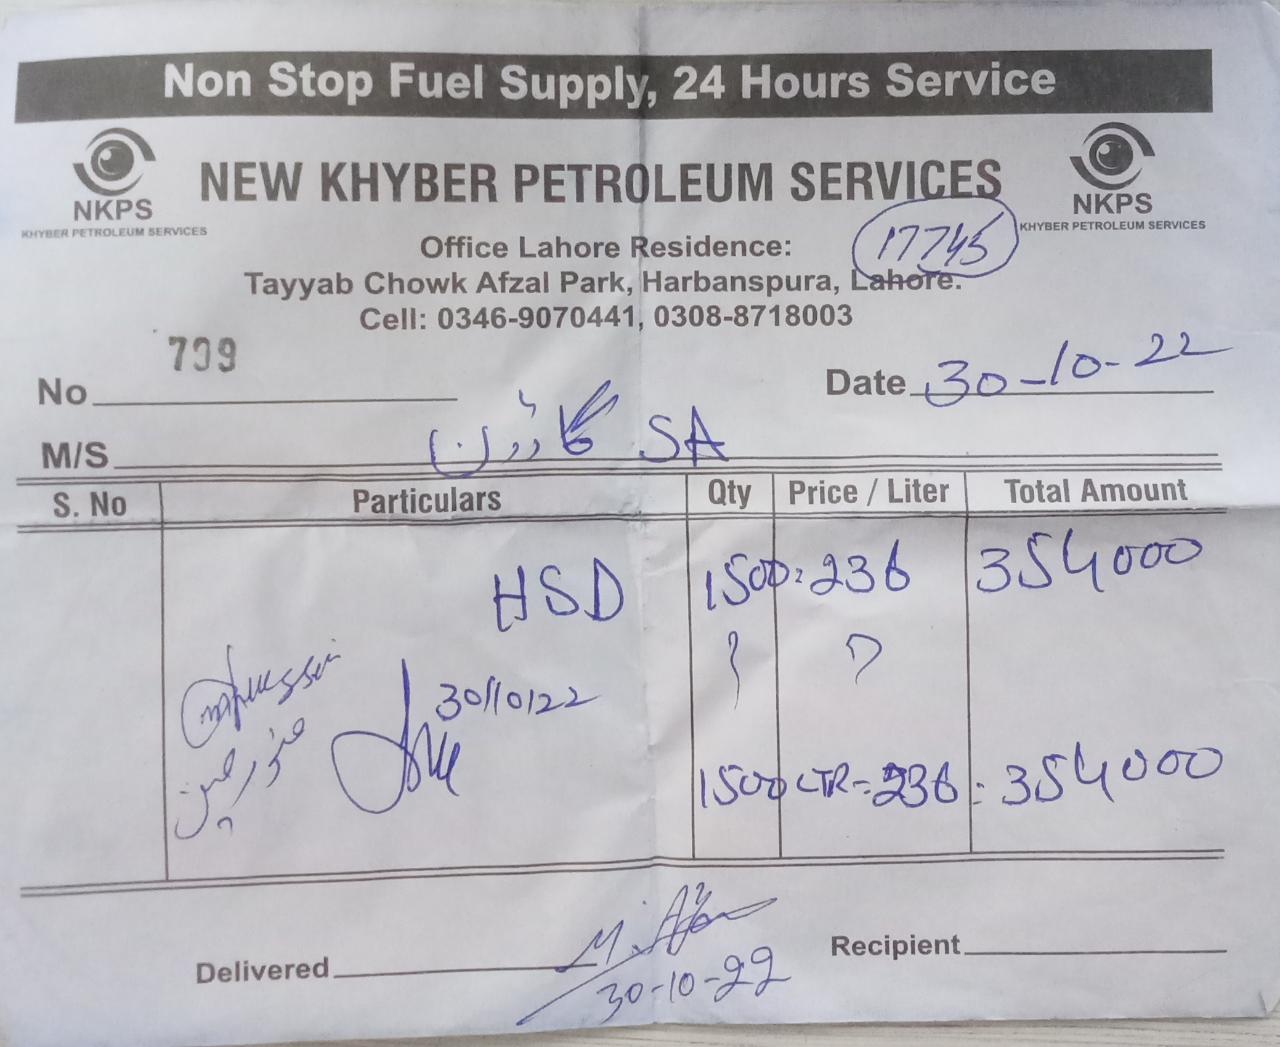 Non Stop Fuel Supply, 24 Hours Service
NKPS
KHYBER PETROLEUM SERVICES
NEW KHYBER PETROLEUM SERVICES
NKPS
KHYBER PETROLEUM SERVICES
17745
Office Lahore Residence:
Tayyab Chowk Afzal Park, Harbanspura, Lahore.
Cell: 0346-9070441, 0308-8718003
No 799
Date 30-10-22
M/S SA گارڈن
S. No Particulars Qty Price / Liter Total Amount
HSD 1500 236 354000
30/10/22
1500 LTR - 236 = 354000
Delivered
30-10-22
Recipient